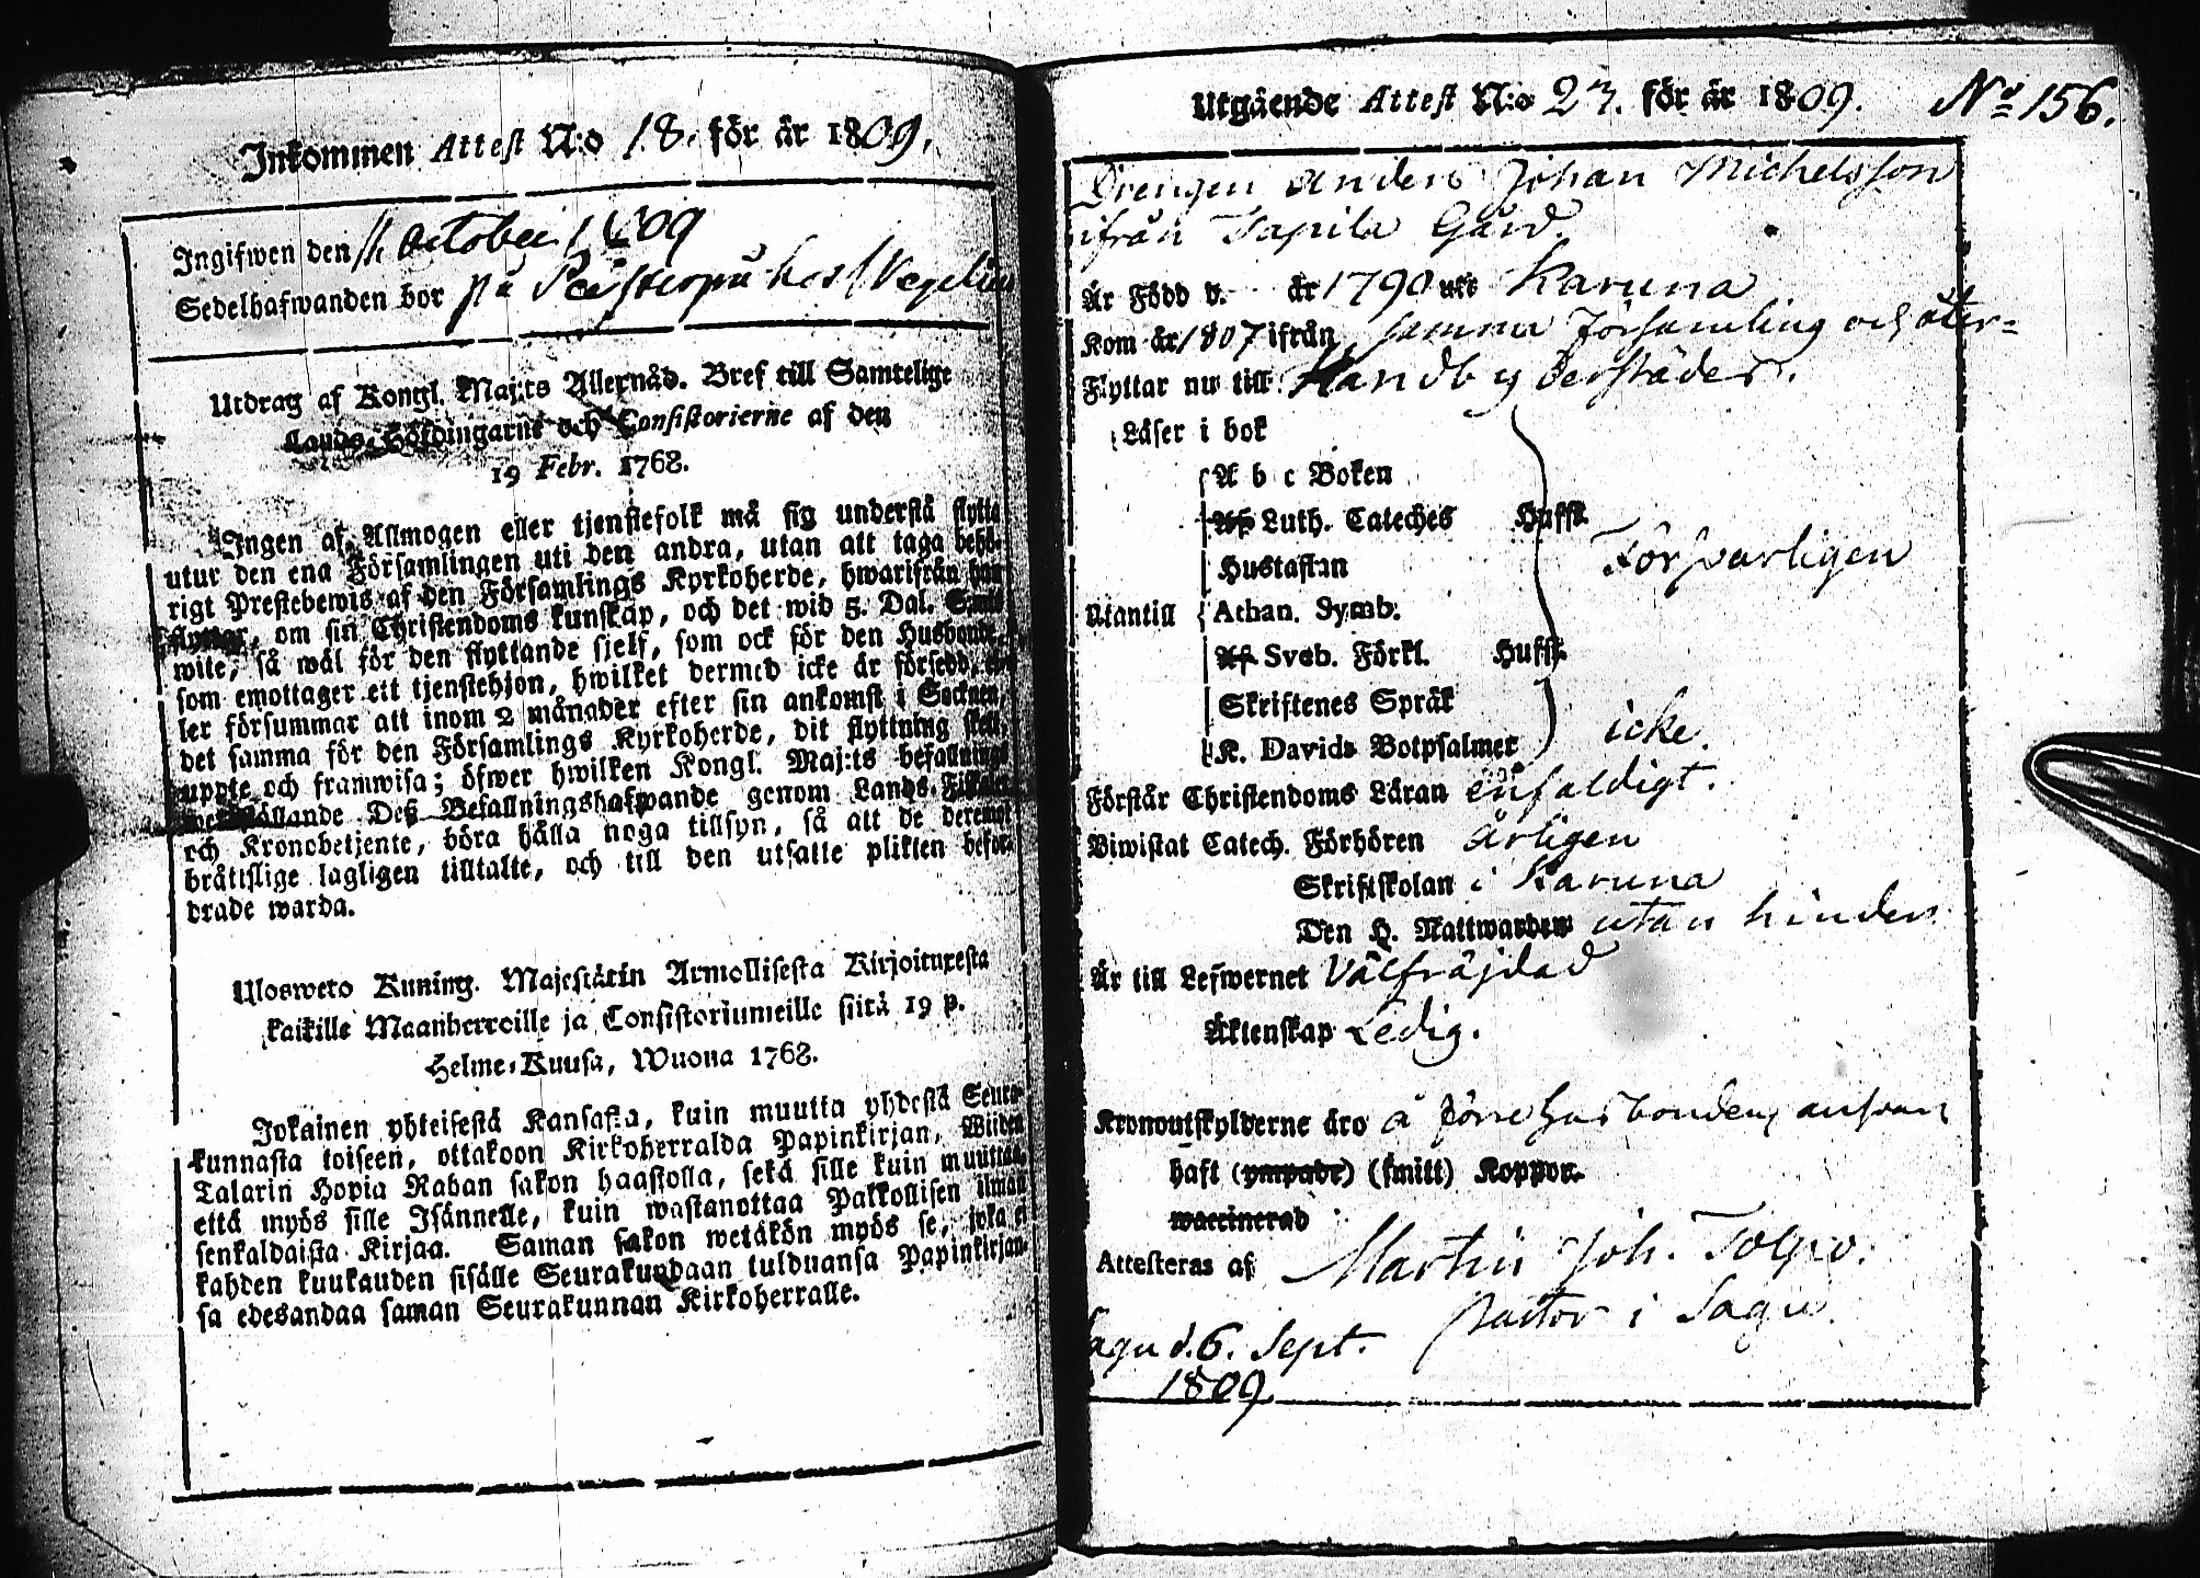 Inkommen Attest N:o 18. för år 1809.
Ingifwen den 11 October 1809
Sedelhafwanden bor på hos
Utdrag af Kongl. Maj:ts Allernåd. Bref till Samtelige
Lands-Höfdingarne och Consistorierne af den
19 Febr. 1768.
Ingen af Allmogen eller tjenstefolk må sig understå flytta
utur den ena Församlingen uti den andra, utan att taga behö-
rigt Prestebewis af den Församlings Kyrkoherde, hwarifrån han
flyttar, om sin Christendoms kunskap, och det wid 5. Dal. S:mts
wite, så wäl för den flyttande sjelf, som ock för den Husbonde,
som emottager ett tjenstehjon, hwilket dermed icke är försedd, el-
ler försummar att inom 2 månader efter sin ankomst i Socknen,
det samma för den Församlings Kyrkoherde, dit flyttning skett,
uppte och framwisa; öfwer hwilken Kongl. Maj:ts befallnings
werkställande Deß Befallningshafwande genom Lands-Fiskaler
och Kronobetjente, böra hålla noga tillsyn, så att de deremot
bråttslige lagligen tilltalte, och till den utsatte plikten befor-
drade warda.
Ulosweto Kuning. Majestätin Armollisesta Kirjoituxesta
kaikille Maanherroille ja Consistoriumeille siitä 19 p.
Helme-Kuusa, Wuona 1768.
Jokainen yhteisestä Kansasta, kuin muutta yhdestä Seura-
kunnasta toiseen, ottakoon Kirkoherralda Papinkirjan, Wiiden
Talarin Hopia Rahan sakon haastolla, sekä sille kuin muuttaa,
että myös sille Isännelle, kuin wastanottaa Palkollisen ilman
senkaldaista Kirjaa. Saman sakon wetäkön myös se, joka ei
kahden kuukauden sisälle Seurakundaan tulduansa Papinkirjan-
sa edesandaa saman Seurakunnan Kirkoherralle.
Utgående Attest N:o 27. för år 1809. No 156.
Drengen Anders Johan Michelsson
ifrån Tapila Gård.
Är Född d. år 1790 uti Karuna
Kom år 1807 ifrån samma församling och åter-
Flyttar nu till Handby derstädes.
Läser i bok
A b c Boken
Af Luth. Cateches Hufst.
Hustaflan
Försvarligen
Utantill Athan. Symb.
Af Sveb. Förkl. Hufst.
Skriftenes Språk
K. Davids Botpsalmer icke.
Förstår Christendoms Läran enfaldigt.
Biwistat Catech. Förhören årligen
Skriftskolan i Karuna
Den H. Nattwarden utan hinder
Är till Lefwernet Välfräjdad
Äktenskap Ledig.
Kronoutskylderne äro å förre husbondens ansvar
haft (ympade) (smitt) Koppor.
waccinerad
Attesteras af Martin Joh. Tolpo.
Pastor i Sagu.
Sagu d. 6. Sept.
1809